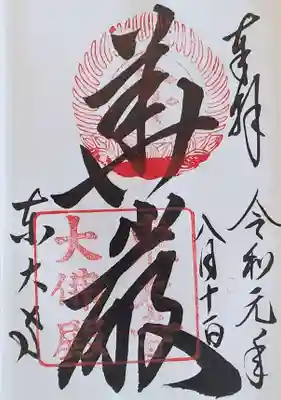 奉拝
令和元年
八月十一日
華厳
東大寺
大佛殿